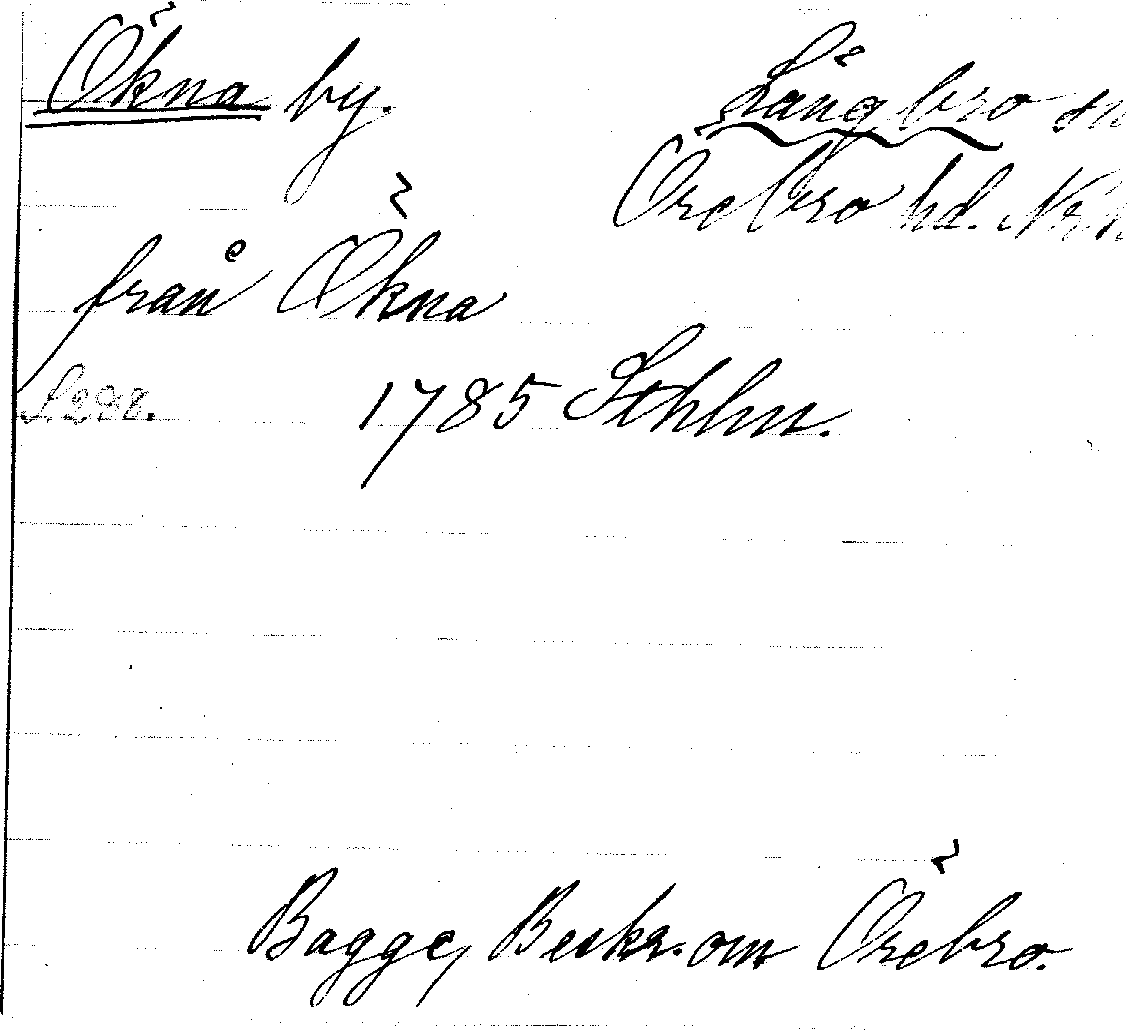 Ökna by. Långbro sn
Örebro hd. Nrk
från Ökna
S. 298. 1785 Sthlm.
Bagge, Beskr. om Örebro.